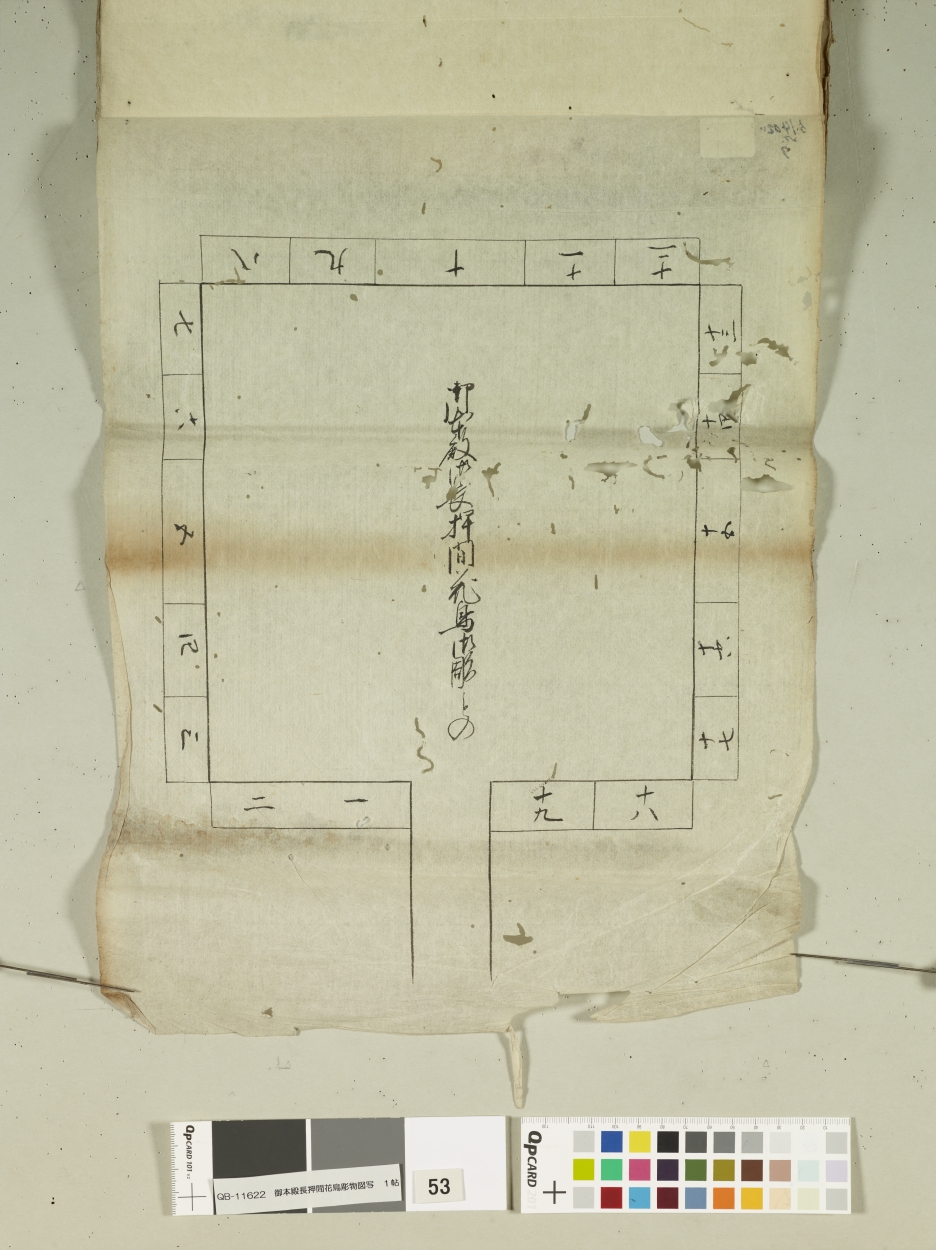 御本殿御長押間花鳥御彫もの
一
二
三
四
五
六
七
八
九
十
十一
十二
十三
十四
十五
十六
十七
十八
十九
QPCARD 101
QB-11622 御本殿長押間花鳥彫物図写 1帖
53
QPCARD 201